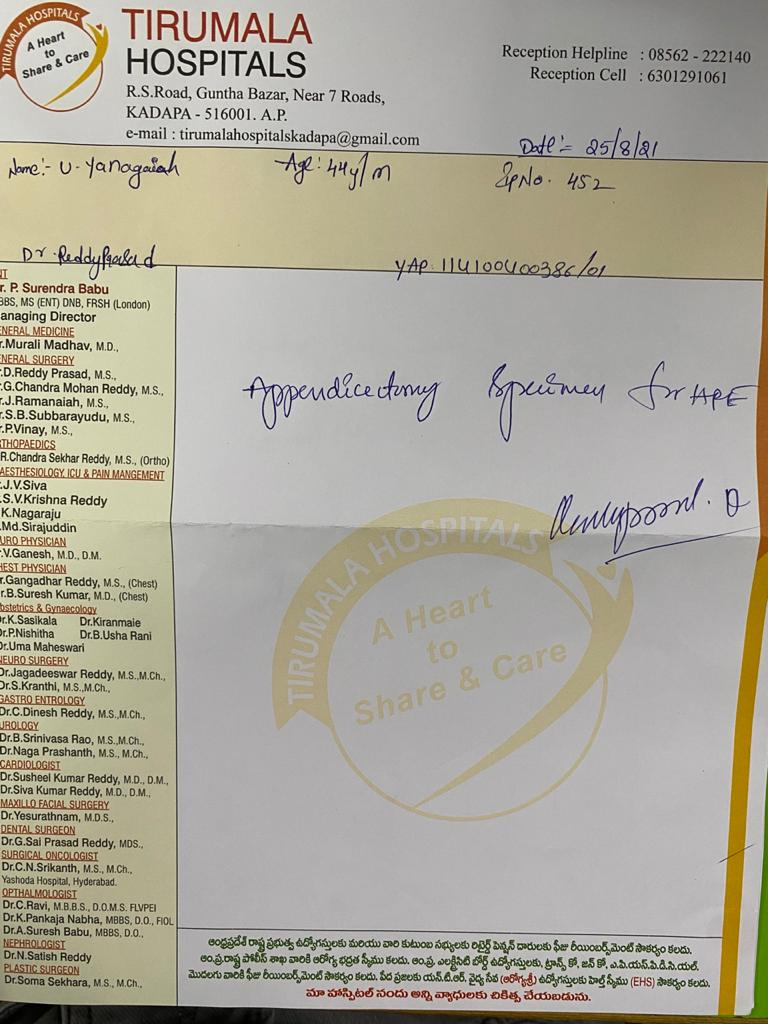 TIRUMALA HOSPITALS
A Heart
to
Share & Care
TIRUMALA
HOSPITALS
R.S.Road, Guntha Bazar, Near 7 Roads,
KADAPA - 516001. A.P.
e-mail : tirumalahospitalskadapa@gmail.com
Reception Helpline : 08562 - 222140
Reception Cell : 6301291061
Date:- 25/8/21
Name:- U. Yanagaiah Age: 44y/m Ip No. 452
Dr. ReddyPrasad YAP: 114100400386/01
NT
r. P. Surendra Babu
BBS, MS (ENT) DNB, FRSH (London)
anaging Director
ENERAL MEDICINE
r.Murali Madhav, M.D.,
ENERAL SURGERY
r.D.Reddy Prasad, M.S.,
r.G.Chandra Mohan Reddy, M.S.,
r.J.Ramanaiah, M.S.,
r.S.B.Subbarayudu, M.S.,
r.P.Vinay, M.S.,
RTHOPAEDICS
R.Chandra Sekhar Reddy, M.S., (Ortho)
AESTHESIOLOGY, ICU & PAIN MANGEMENT
.J.V.Siva
.S.V.Krishna Reddy
K.Nagaraju
.Md.Sirajuddin
URO PHYSICIAN
r.V.Ganesh, M.D., D.M.
HEST PHYSICIAN
r.Gangadhar Reddy, M.S., (Chest)
r.B.Suresh Kumar, M.D., (Chest)
bstetrics & Gynaecology
Dr.K.Sasikala Dr.Kiranmaie
Dr.P.Nishitha Dr.B.Usha Rani
Dr.Uma Maheswari
NEURO SURGERY
Dr.Jagadeeswar Reddy, M.S.,M.Ch.,
Dr.S.Kranthi, M.S.,M.Ch.,
GASTRO ENTROLOGY
Dr.C.Dinesh Reddy, M.S.,M.Ch.,
UROLOGY
Dr.B.Srinivasa Rao, M.S.,M.Ch.,
Dr.Naga Prashanth, M.S., M.Ch.,
CARDIOLOGIST
Dr.Susheel Kumar Reddy, M.D., D.M.,
Dr.Siva Kumar Reddy, M.D., D.M.,
MAXILLO FACIAL SURGERY
Dr.Yesurathnam, M.D.S.,
DENTAL SURGEON
Dr.G.Sai Prasad Reddy, MDS.,
SURGICAL ONCOLOGIST
Dr.C.N.Srikanth, M.S., M.Ch.,
Yashoda Hospital, Hyderabad.
OPTHALMOLOGIST
Dr.C.Ravi, M.B.B.S., D.O.M.S. FLVPEI
Dr.K.Pankaja Nabha, MBBS, D.O., FIOL
Dr.A.Suresh Babu, MBBS, D.O.,
NEPHROLOGIST
Dr.N.Satish Reddy
PLASTIC SURGEON
Dr.Soma Sekhara, M.S., M.Ch.,
Appendicectomy Specimen for HPE
TIRUMALA HOSPITALS
A Heart
to
Share & Care
ఆంధ్రప్రదేశ్ రాష్ట్ర ప్రభుత్వ ఉద్యోగస్తులకు మరియు వారి కుటుంబ సభ్యులకు రిటైర్డ్ పెన్షన్ దారులకు ఫీజు రీయింబర్స్‌మెంట్ సౌకర్యం కలదు.
ఆం.ప్ర.రాష్ట్ర పోలీస్ శాఖ వారికి ఆరోగ్య భద్రత స్కీము కలదు. ఆం.ప్ర. ఎలక్ట్రిసిటి బోర్డ్ ఉద్యోగస్తులకు, ట్రాన్స్ కో, జన్ కో, ఎ.పి.యస్.పి.డి.సి.యల్.
మొదలుగు వారికి ఫీజు రీయింబర్స్‌మెంట్ సౌకర్యం కలదు. పేద ప్రజలకు యన్.టి.ఆర్. వైద్య సేవ (ఆరోగ్యశ్రీ) ఉద్యోగస్తులకు హెల్త్ స్కీము (EHS) సౌకర్యం కలదు.
మా హాస్పిటల్ నందు అన్ని వ్యాధులకు చికిత్స చేయబడును.